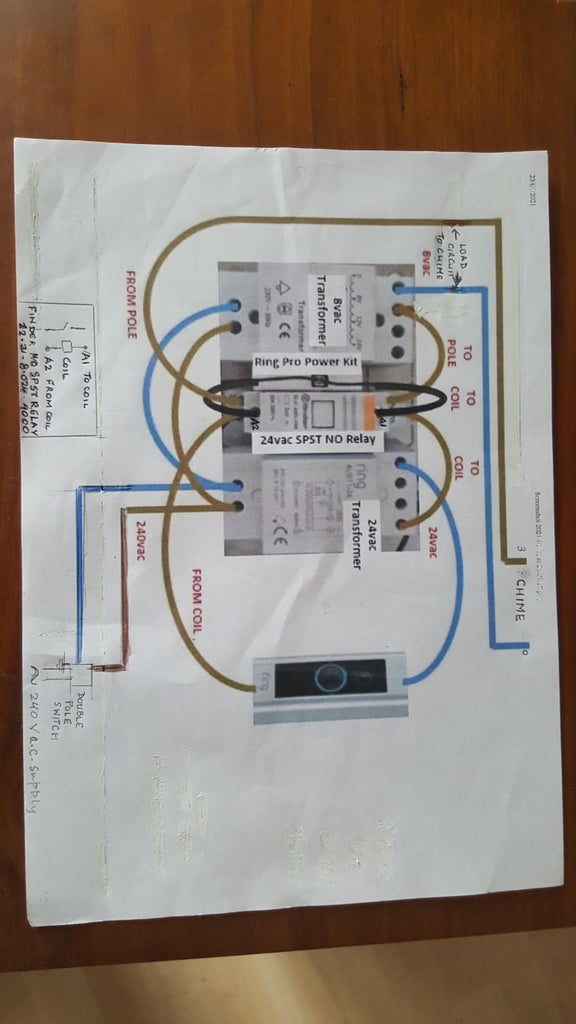 23/ /2021
← LOAD
CIRCUIT
TO CHIME
8vac
TO
POLE
TO
COIL
TO
COIL
24vac
3
CHIME
0
Screenshot 2021
8vac
Transformer
Transformer
230V ~ 50Hz
CE
Ring Pro Power Kit
A2
A1
24vac SPST NO Relay
ring
24vac
Transformer
CE
FROM POLE
FROM COIL
240vac
ring
A1 TO COIL
COIL
A2 FROM COIL
FINDER NO SPST RELAY
DOUBLE
POLE
SWITCH
240V a.c. supply